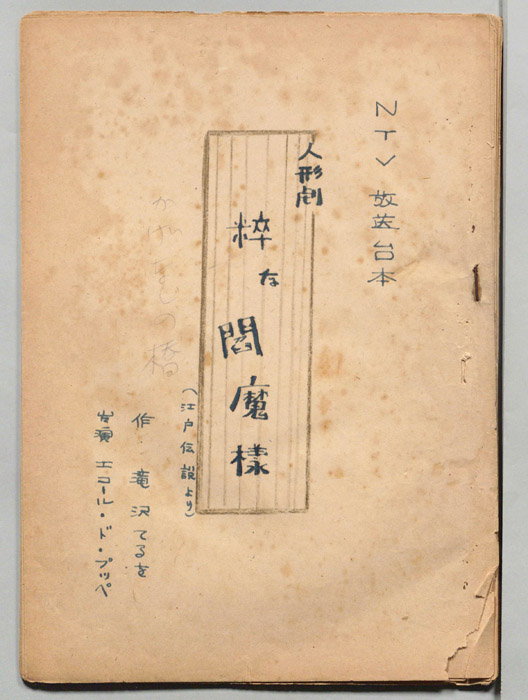 NTV 放送台本
人形劇
粋な閻魔様
(江戸伝説より)
作 滝沢てるを
出演 エコール・ド・プッペ